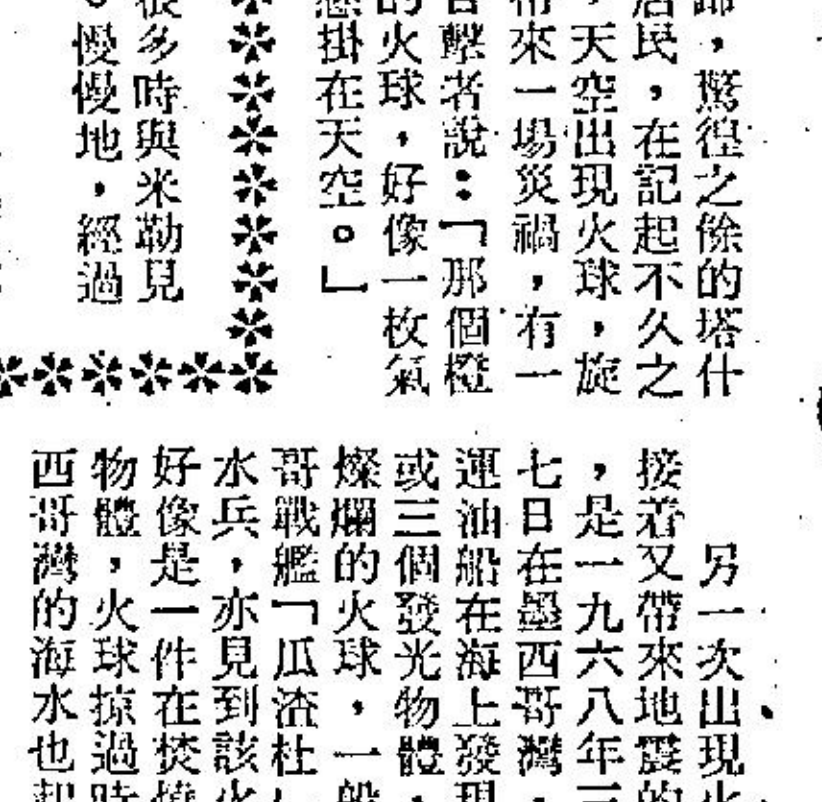 歸，驚徨之餘的塔什
居民，在記起不久之
，天空出現火球，旋
帶來一場災禍，有一
目擊者說：「那個橙
的火球，好像一枚氣
懸掛在天空。」
很多時與米勒見
。慢慢地，經過
另一次出現火
接着又帶來地震的
，是一九六八年三
七日在墨西哥灣，
運油船在海上發現
或三個發光物體，
燦爛的火球，一般
哥戰艦「瓜渣杜
水兵，亦見到該火
好像是一件在焚燒
物體，火球掠過時
西哥灣的海水也起